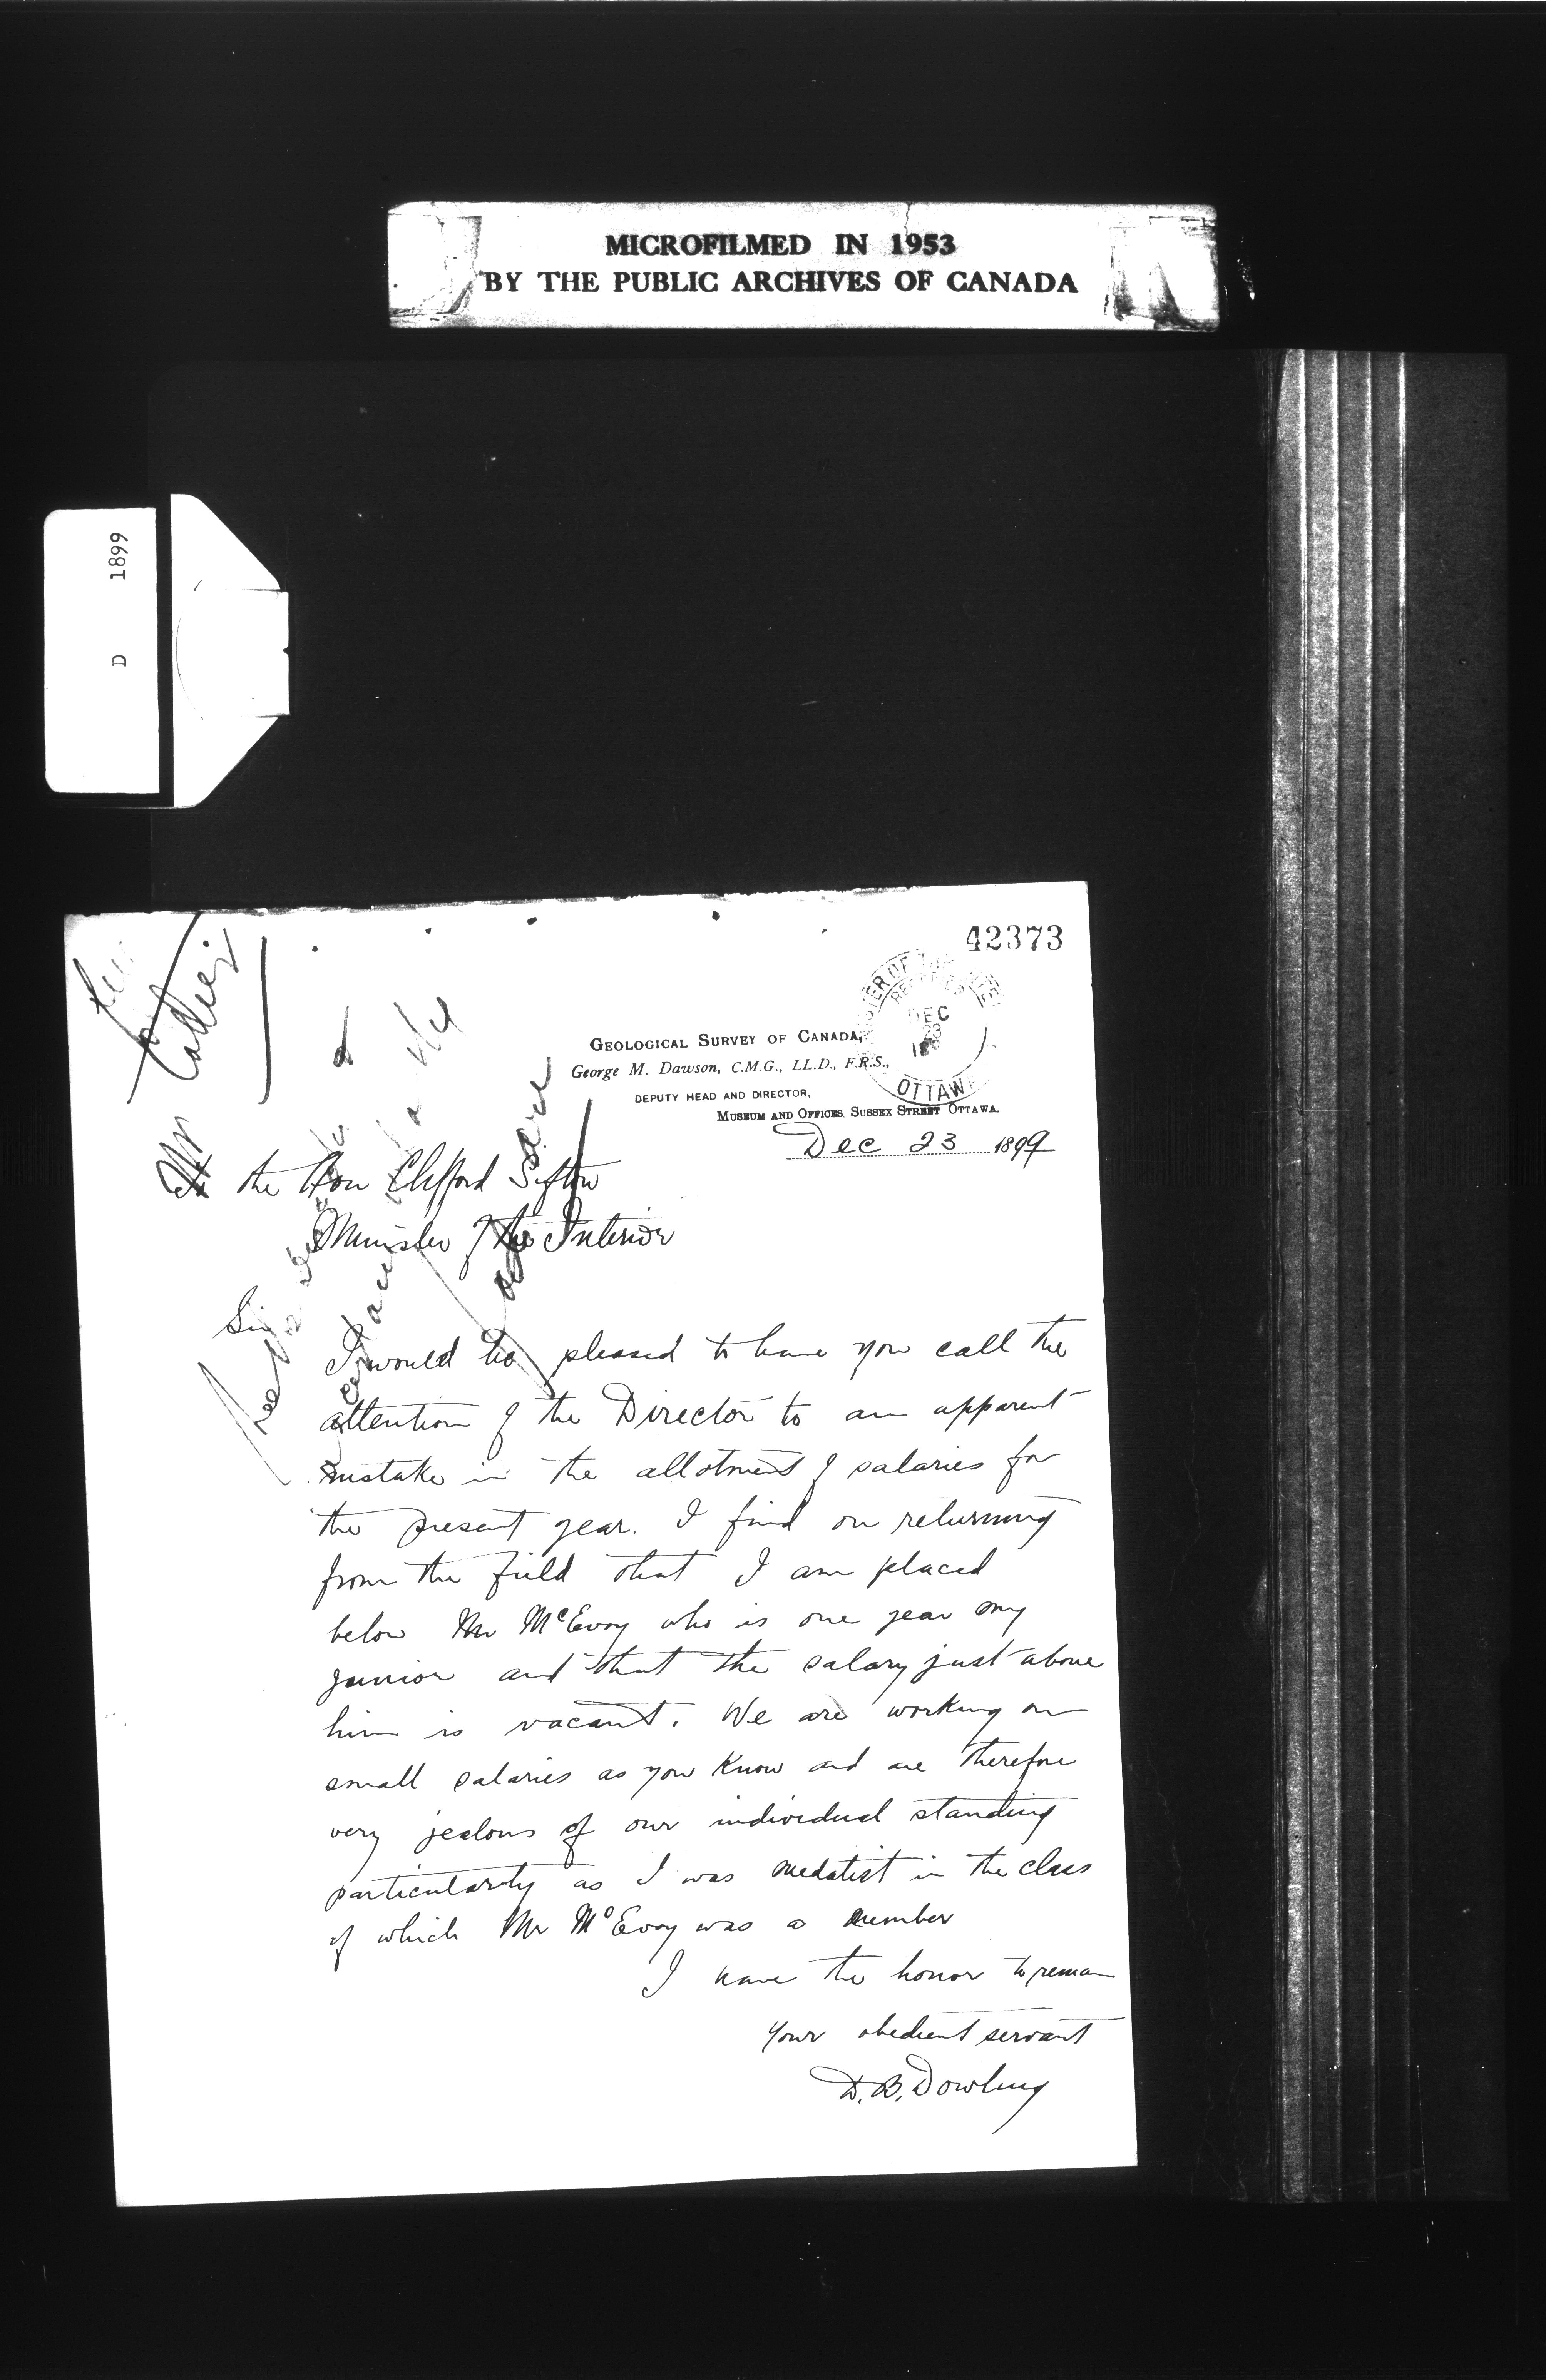 MICROFILMED IN 1953
BY THE PUBLIC ARCHIVES OF CANADA
D 1899
42373
DEC
23
OTTAW
GEOLOGICAL SURVEY OF CANADA,
George M. Dawson, C.M.G., LL.D., F.R.S.,
DEPUTY HEAD AND DIRECTOR,
MUSEUM AND OFFICES. SUSSEX STREET OTTAWA.
Dec 23 1899
the Hon Clifford Sifton
Minister of the Interior
Sir
I would be pleased to have you call the
attention of the Director to an apparent
mistake in the allotment of salaries for
the present year. I find on returning
from the field that I am placed
below Mr McEvoy who is one year my
junior and that the salary just above
him is vacant. We are working on
small salaries as you know and are therefore
very jealous of our individual standing
particularly as I was medalist in the class
of which Mr McEvoy was a member
I have the honor to remain
Your obedient servant
D. B. Dowling